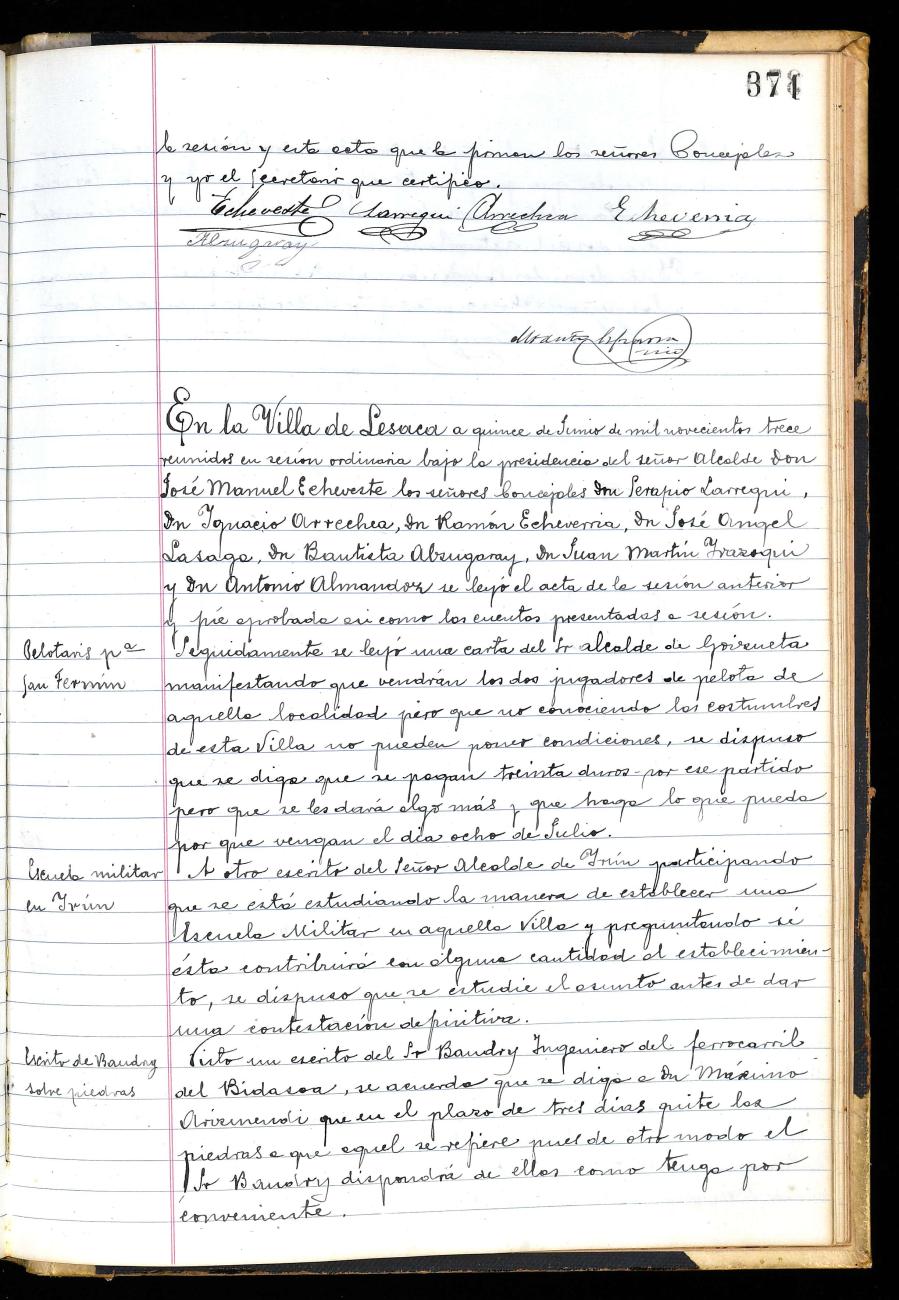 la sesión y esta acta que la firman los señores Concejales
y yo el Secretario que certifico.
Echeveste Larregui Arrechea Echeverria
Alzugaray
En la Villa de Lesaca a quince de Junio de mil novecientos trece
reunidos en sesión ordinaria bajo la presidencia del señor Alcalde Don
José Manuel Echeveste los señores Concejales Don Serapio Larregui,
Dn Ignacio Arrechea, Dn Ramón Echeverria, Dn José Angel
Lasaga, Dn Bautista Alzugaray, Dn Juan Martín Irazoqui
y Dn Antonio Almandoz se leyó el acta de la sesión anterior
y fué aprobada asi como las cuentas presentadas a sesión.
Pelotaris pa
San Fermín
Seguidamente se leyó una carta del Sr alcalde de Goizueta
manifestando que vendrán los dos jugadores de pelota de
aquella localidad pero que no conociendo las costumbres
de esta Villa no pueden poner condiciones, se dispuso
que se diga que se pagan treinta duros por ese partido
pero que se les dará algo más y que haga lo que pueda
por que vengan el día ocho de Julio.
Escuela militar
en Irún
A otro escrito del Señor Alcalde de Irún participando
que se está estudiando la manera de establecer una
Escuela Militar en aquella Villa y preguntando si
ésta contribuirá con alguna cantidad al establecimien-
to, se dispuso que se estudie el asunto antes de dar
una contestación definitiva.
Escrito de Baudry
sobre piedras
Visto un escrito del Sr Baudry Ingeniero del ferrocarril
del Bidasoa, se acuerda que se diga a Dn Máximo
Arizmendi que en el plazo de tres dias quite las
piedras a que aquel se refiere pues de otro modo el
Sr Baudry dispondrá de ellas como tenga por
conveniente.